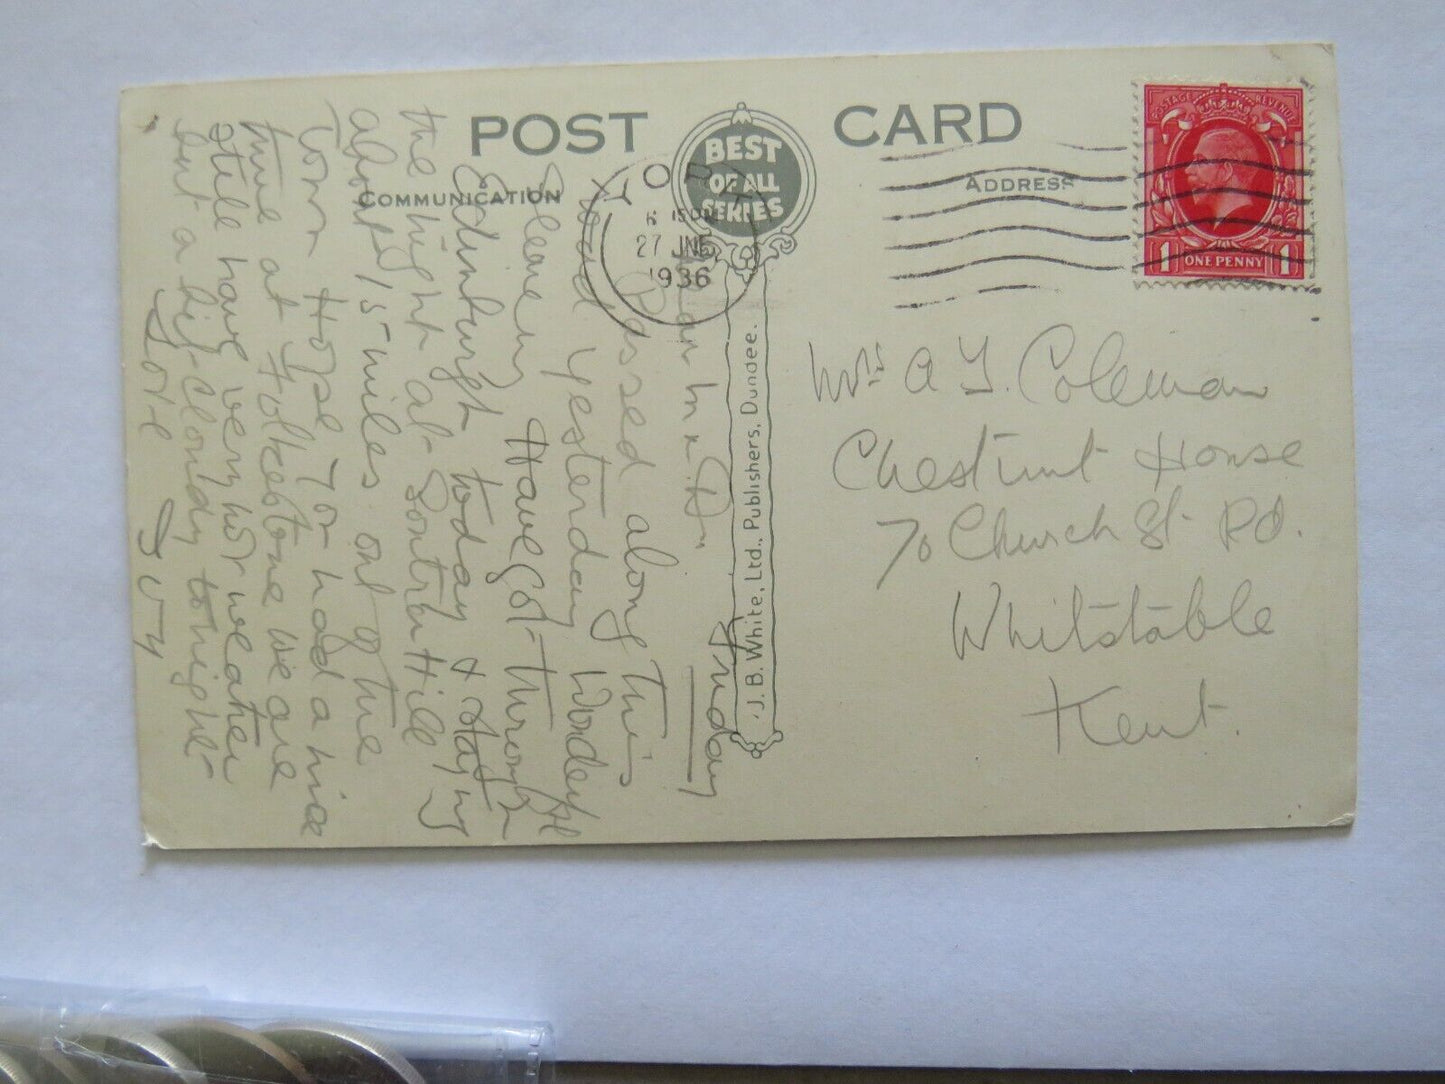 POST CARD
BEST
OF ALL
SERIES
COMMUNICATION
ADDRESS
POSTAGE REVENUE
1 ONE PENNY 1
27 JNE
1936
J. B. White, Ltd., Publishers, Dundee.
Friday
Passed along this
road yesterday Wonderful
Scenery Have got through
Edinburgh today & staying
the night at Soutra Hill
about 15 miles out of the
Town Hope you had a nice
time at Folkestone we are
still having very hot weather
but a bit cloudy tonight
Love
Mrs A J. Coleman
Chestnut House
70 Church St Rd.
Whitstable
Kent.